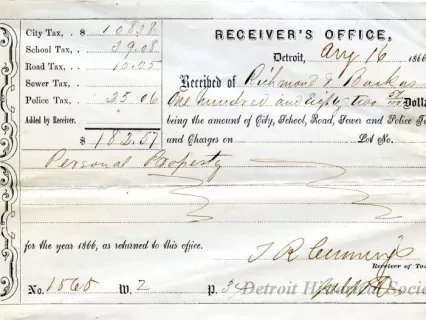 RECEIVER'S OFFICE,
City Tax, . . $ 108.38
School Tax, . 39.08
Road Tax, . . 10.05
Sewer Tax, .
Police Tax, . 25 06
Added by Receiver.
$ 182.57
Detroit, Aug 16 1866
Received of Richmond & Backus
One hundred and Eighty two 57/100 Dolla
being the amount of City, School, Road, Sewer and Police Ta
and Charges on Lot No.
Personal Property
for the year 1866, as returned to this office.
Receiver of Tax
No. 1565 W. 2 P. 34
Detroit Historical Socie